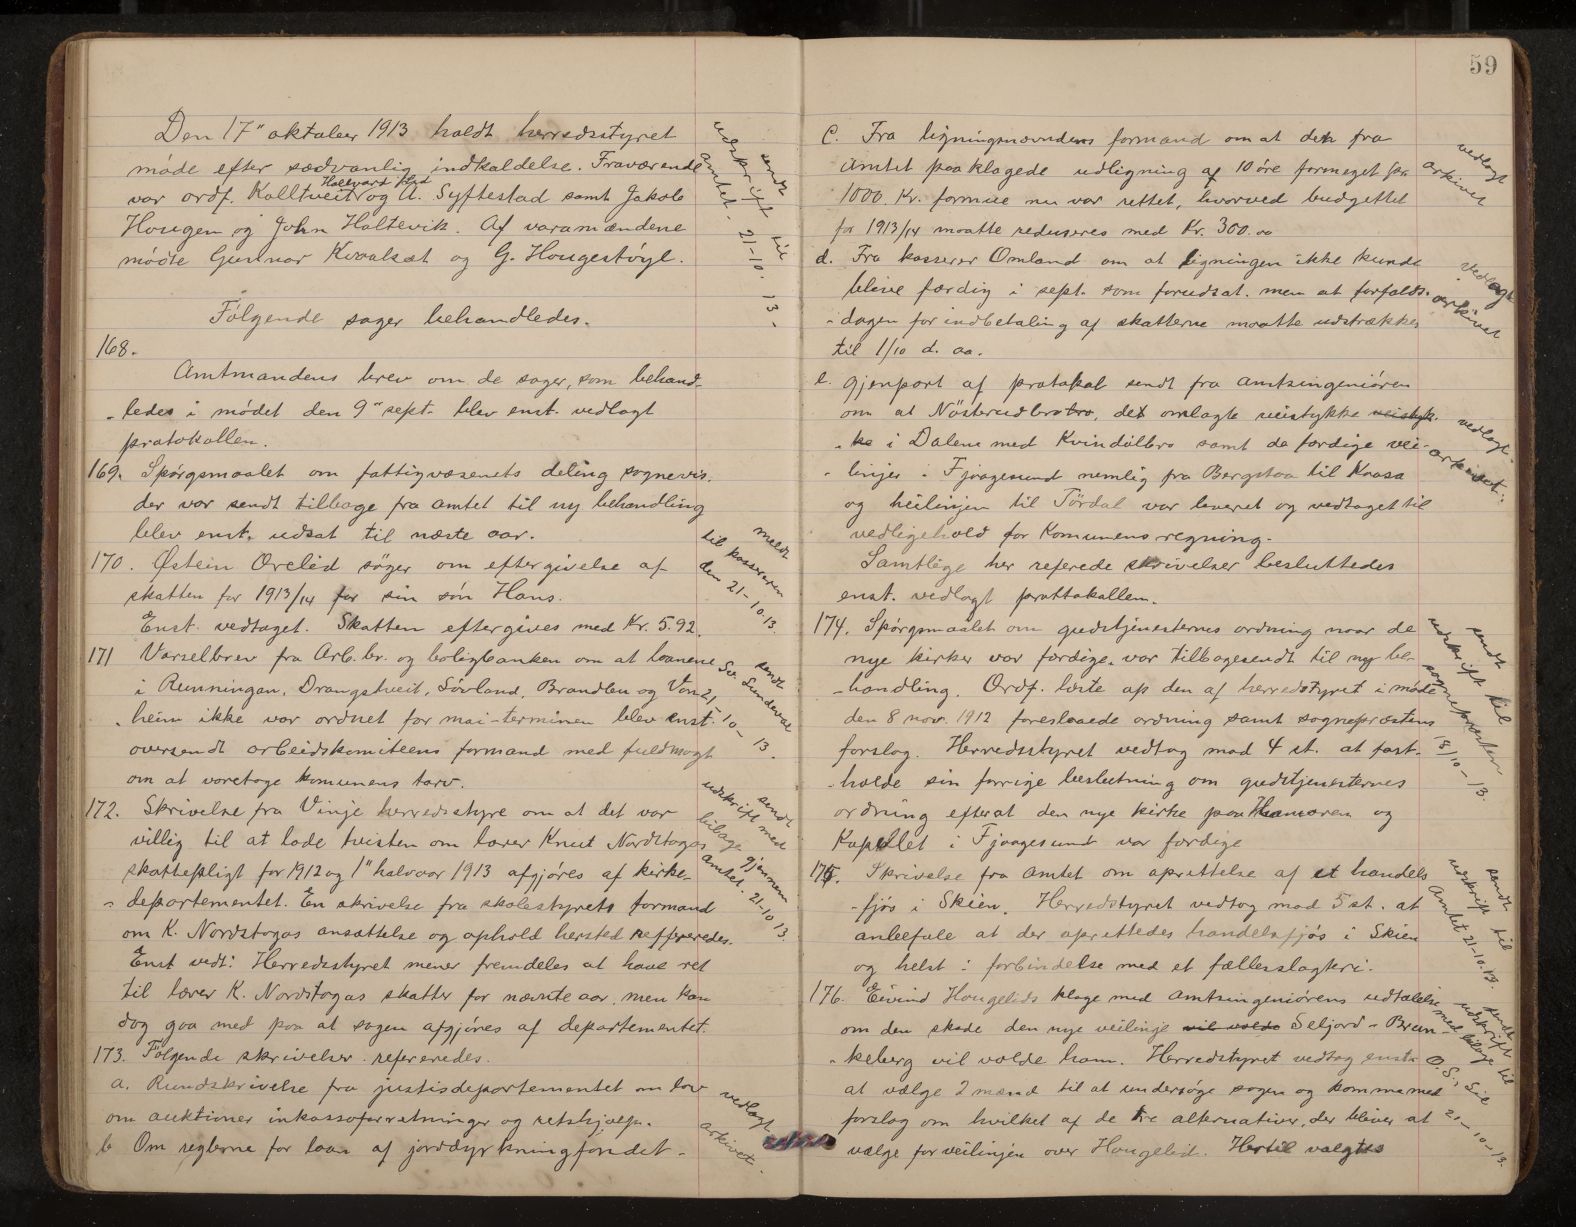 Den 17" oktober 1913 holdt herredsstyret
møde efter sædvanlig indkaldelse. Fraværende
Hallvard
var ordf. Kolltveit og A. Syftestad samt Jakob
Hougen og John Haltevik. Af varamændene
mødte Gunnar Kvaalsæt og G. Hougestøyl.
Følgende sager behandledes.
168.
Amtmandens brev om de sager, som behand-
ledes i mødet den 9" sept. blev enst. vedlagt
protokollen.
169. Spørgsmaalet om fattigvæsenets deling sognevis.
der var sendt tilbage fra amtet til ny behandling
blev enst. udsat til næste aar.
170. Østein Ørelid søger om eftergivelse af
skatten for 1913/14 for sin søn Hans.
Enst. vedtaget. Skatten eftergives med Kr. 5.92.
171 Varselbrev fra Arb. br. og boligbanken om at laanene
i Runningen, Drangstveit, Løvland, Brandlen og Von-
heim ikke var ordnet for mai-terminen blev enst.
oversendt arbeidskomiteens formand med fuldmagt
om at varetage komunens tarv.
172. Skrivelse fra Vinje herredsstyre om at det var
villig til at lade tvisten om lærer Knut Nordstogas
skattepligt for 1912 og 1" halvaar 1913 afgjøres af kirke-
departementet. En skrivelse fra skolestyrets formand
om K. Nordstogas ansættelse og ophold hersted reffereredes.
Enst vedt: Herredsstyret mener fremdeles at have ret
til lærer K. Nordstogas skatter for nævnte aar, men kan
dog gaa med paa at sagen afgjøres af departementet.
173. Følgende skrivelser refereredes.
a. Rundskrivelse fra justisdepartementet om lov
om auktioner inkassoforretninger og retshjælp.
b Om reglerne for laan af jorddyrkningsfondet.
udskrift
sendt til
amtet. 21-10. 13-
meldt
til kassereren
den 21-10. 13.
sendt
Sv. Sundevæ
21-10-13.
sendt
udskrift med
bilage gjennem
amtet. 21-10 13.
vedlagt
arkivet.
59
c. Fra ligningsnævndens formand om at den fra
amtet paaklagede udligning af 10 øre formeget pr.
1000 Kr. formue nu var rettet, hvorved budgettet
for 1913/14 maatte reduseres med Kr. 300.00
d. Fra kasserer Omland om at ligningen ikke kunde
blive færdig i sept. som forudsat. men at forfalds-
dagen for indbetaling af skatterne maatte udstrækkes
til 1/10 d. aa.
e. gjenpart af protokol sendt fra amtsingeniøren
om at Nøsterudbro, det omlagte veistykke veistyk-
ke i Dalene med Kvindølbro samt de færdige vei-
linjer i Fjaagesund nemlig fra Bergstaa til Kaasa
og heilinjen til Tørdal var leveret og vedtaget til
vedligehold for Komunens regning.
Samtlige her referede skrivelser besluttedes
enst. vedlagt prottokallen.
174. Spørgsmaalet om gudstjenesternes ordning naar de
nye kirker var færdige. var tilbagesendt til ny be-
handling. Ordf. læste op den af herredstyret i møde
den 8 nov. 1912 foreslaaede ordning samt sogneprestens
forslag. Herredsstyret vedtog mod 4 st. at fast-
holde sin forrige beslutning om gudstjenesternes
ordning efterat den nye kirke paa Hamaren og
Kapellet i Fjaagesund var færdige
175. Skrivelse fra amtet om oprettelse af et handels
fjøs i Skien. Herredstyret vedtog mod 5 st. at
anbefale at der oprettedes handelsfjøs i Skien
og helst i forbindelse med et fællesslagteri.
176. Eivind Hougelids klage med amtsingeniørens udtalelse
om den skade den nye veilinje vil volde Seljord-Brun-
keberg vil volde ham. Herredstyret vedtog enst.
at vælge 2 mænd til at undersøge sagen og komme med
forslag om hvilket af de tre alternativer, der bliver at
vælge for veilinjen over Hougelid. Hertil valgtes
vedlagt
arkivet
vedlagt
arkivet
vedlagt
arkivet.
sendt
udskrift til
sognepresten
18/10-13.
sendt
udskrift til
Amtet 21-10. 13.
sendt
udskrift til
med bilage
O. S.
21-10-13.